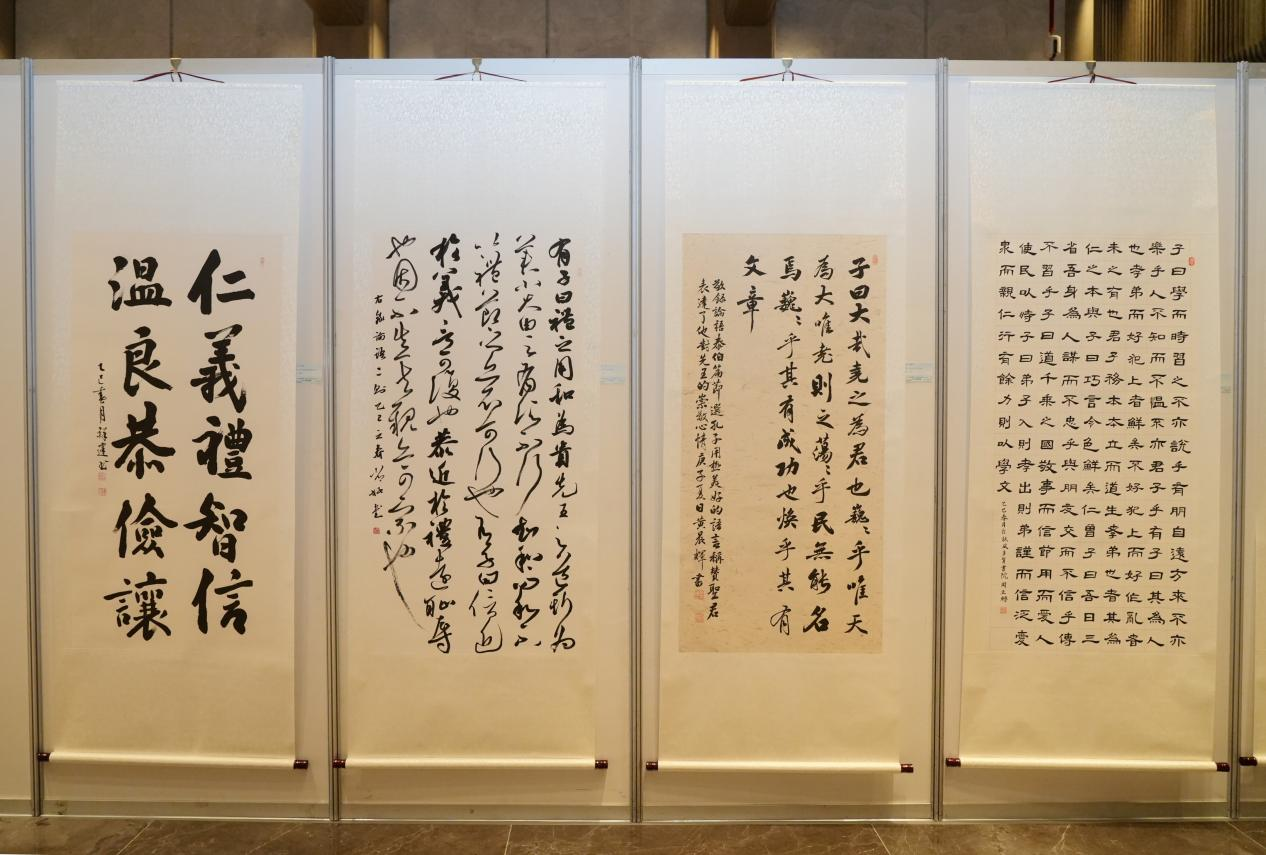 仁義禮智信
溫良恭儉讓
乙巳春月祥運書
有子曰禮之用和為貴先王之道斯為
美小大由之有所不行知和而和不
以禮節之亦不可行也有子曰信近
於義言可復也恭近於禮遠恥辱
也因不失其親亦可宗也
右錄論語二則乙巳立春
子曰大哉堯之為君也巍〻乎唯天
為大唯堯則之蕩〻乎民無能名
焉巍〻乎其有成功也煥乎其有
文章
敬錄論語泰伯篇節選孔子用極美好的語言稱贊聖君
表達了他對先王的崇敬心情庚子夏日黃晨輝書
子曰學而時習之不亦說乎有朋自遠方來不亦
樂乎人不知而不慍不亦君子乎有子曰其為人
也孝弟而好犯上者鮮矣不好犯上而好作亂者
未之有也君子務本本立而道生孝弟也者其為
仁之本與子曰巧言令色鮮矣仁曾子曰吾日三
省吾身為人謀而不忠乎與朋友交而不信乎傳
不習乎子曰道千乘之國敬事而信節用而愛人
使民以時子曰弟子入則孝出則弟謹而信泛愛
眾而親仁行有餘力則以學文
乙巳春月